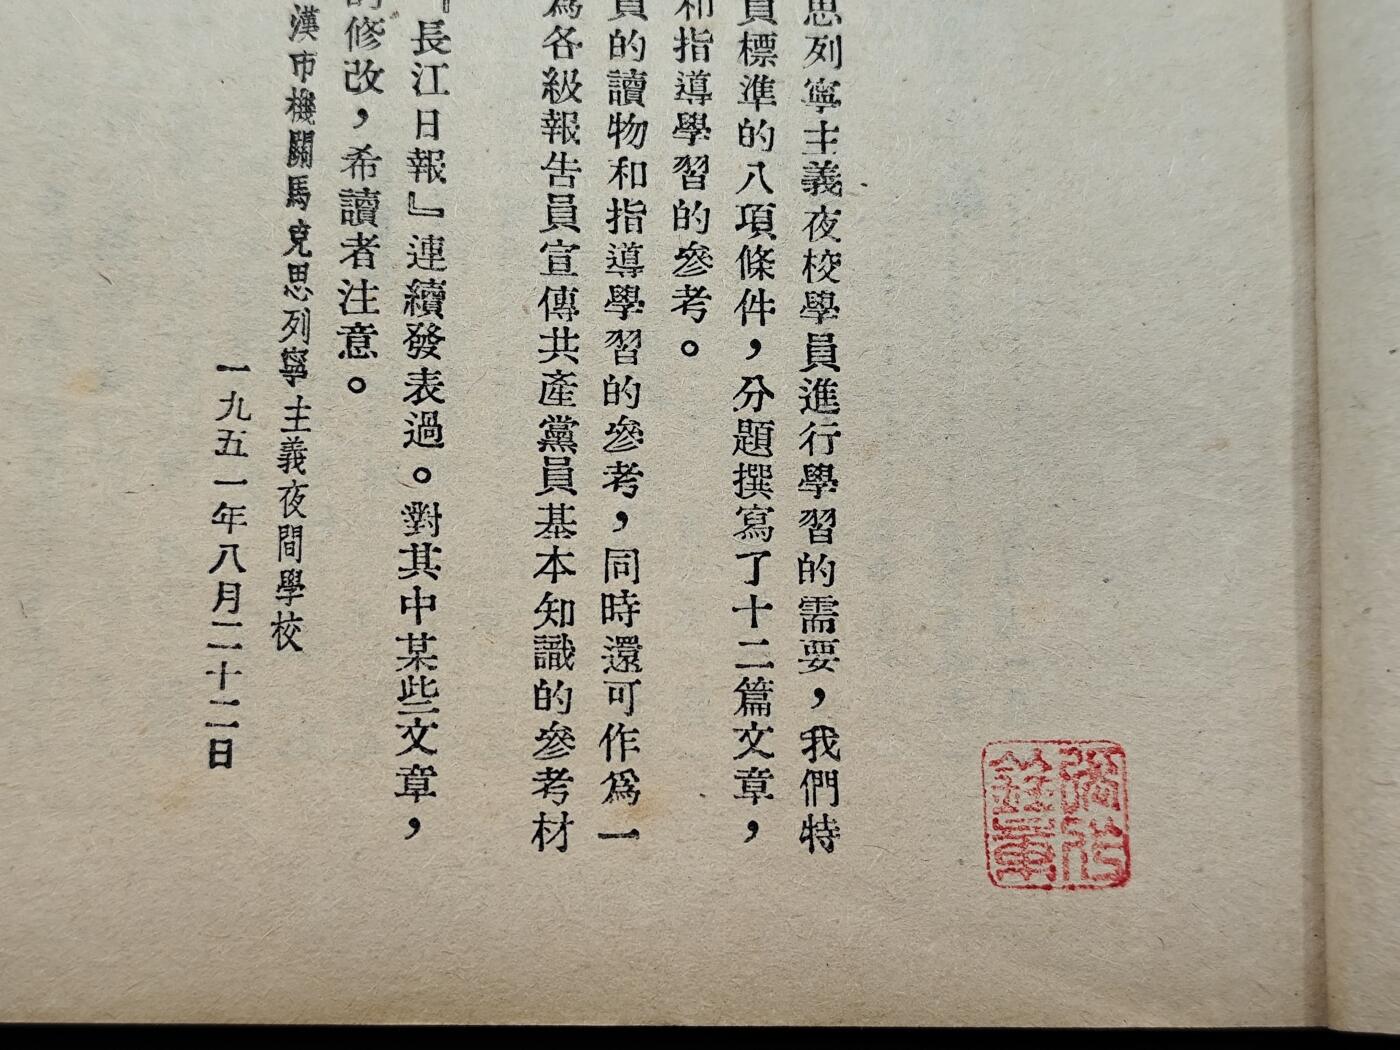 思列寧主義夜校學員進行學習的需要，我們特
員標準的八項條件，分題撰寫了十二篇文章，
和指導學習的參考。
員的讀物和指導學習的參考，同時還可作爲一
爲各級報告員宣傳共產黨員基本知識的參考材
『長江日報』連續發表過。對其中某些文章，
的修改，希讀者注意。
漢市機關馬克思列寧主義夜間學校
一九五一年八月二十二日